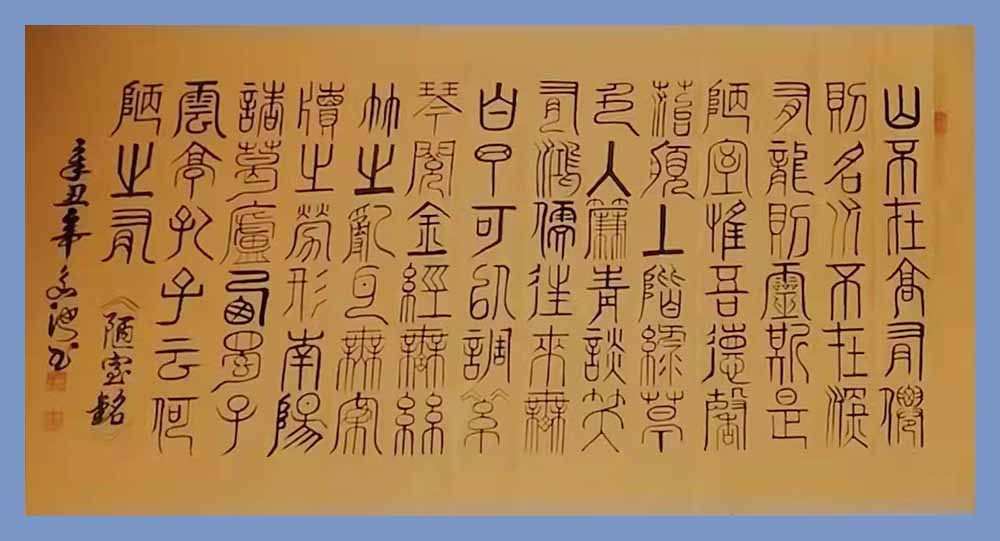 山不在高有僊
則名水不在深
有龍則靈斯是
陋室惟吾德馨
菭痕上階綠草
色入簾青談笑
有鴻儒往來無
白丁可以調素
琴閱金經無絲
竹之亂耳無案
牘之勞形南陽
諸葛廬西蜀子
雲亭孔子云何
陋之有
《陋室銘》
辛丑年海书